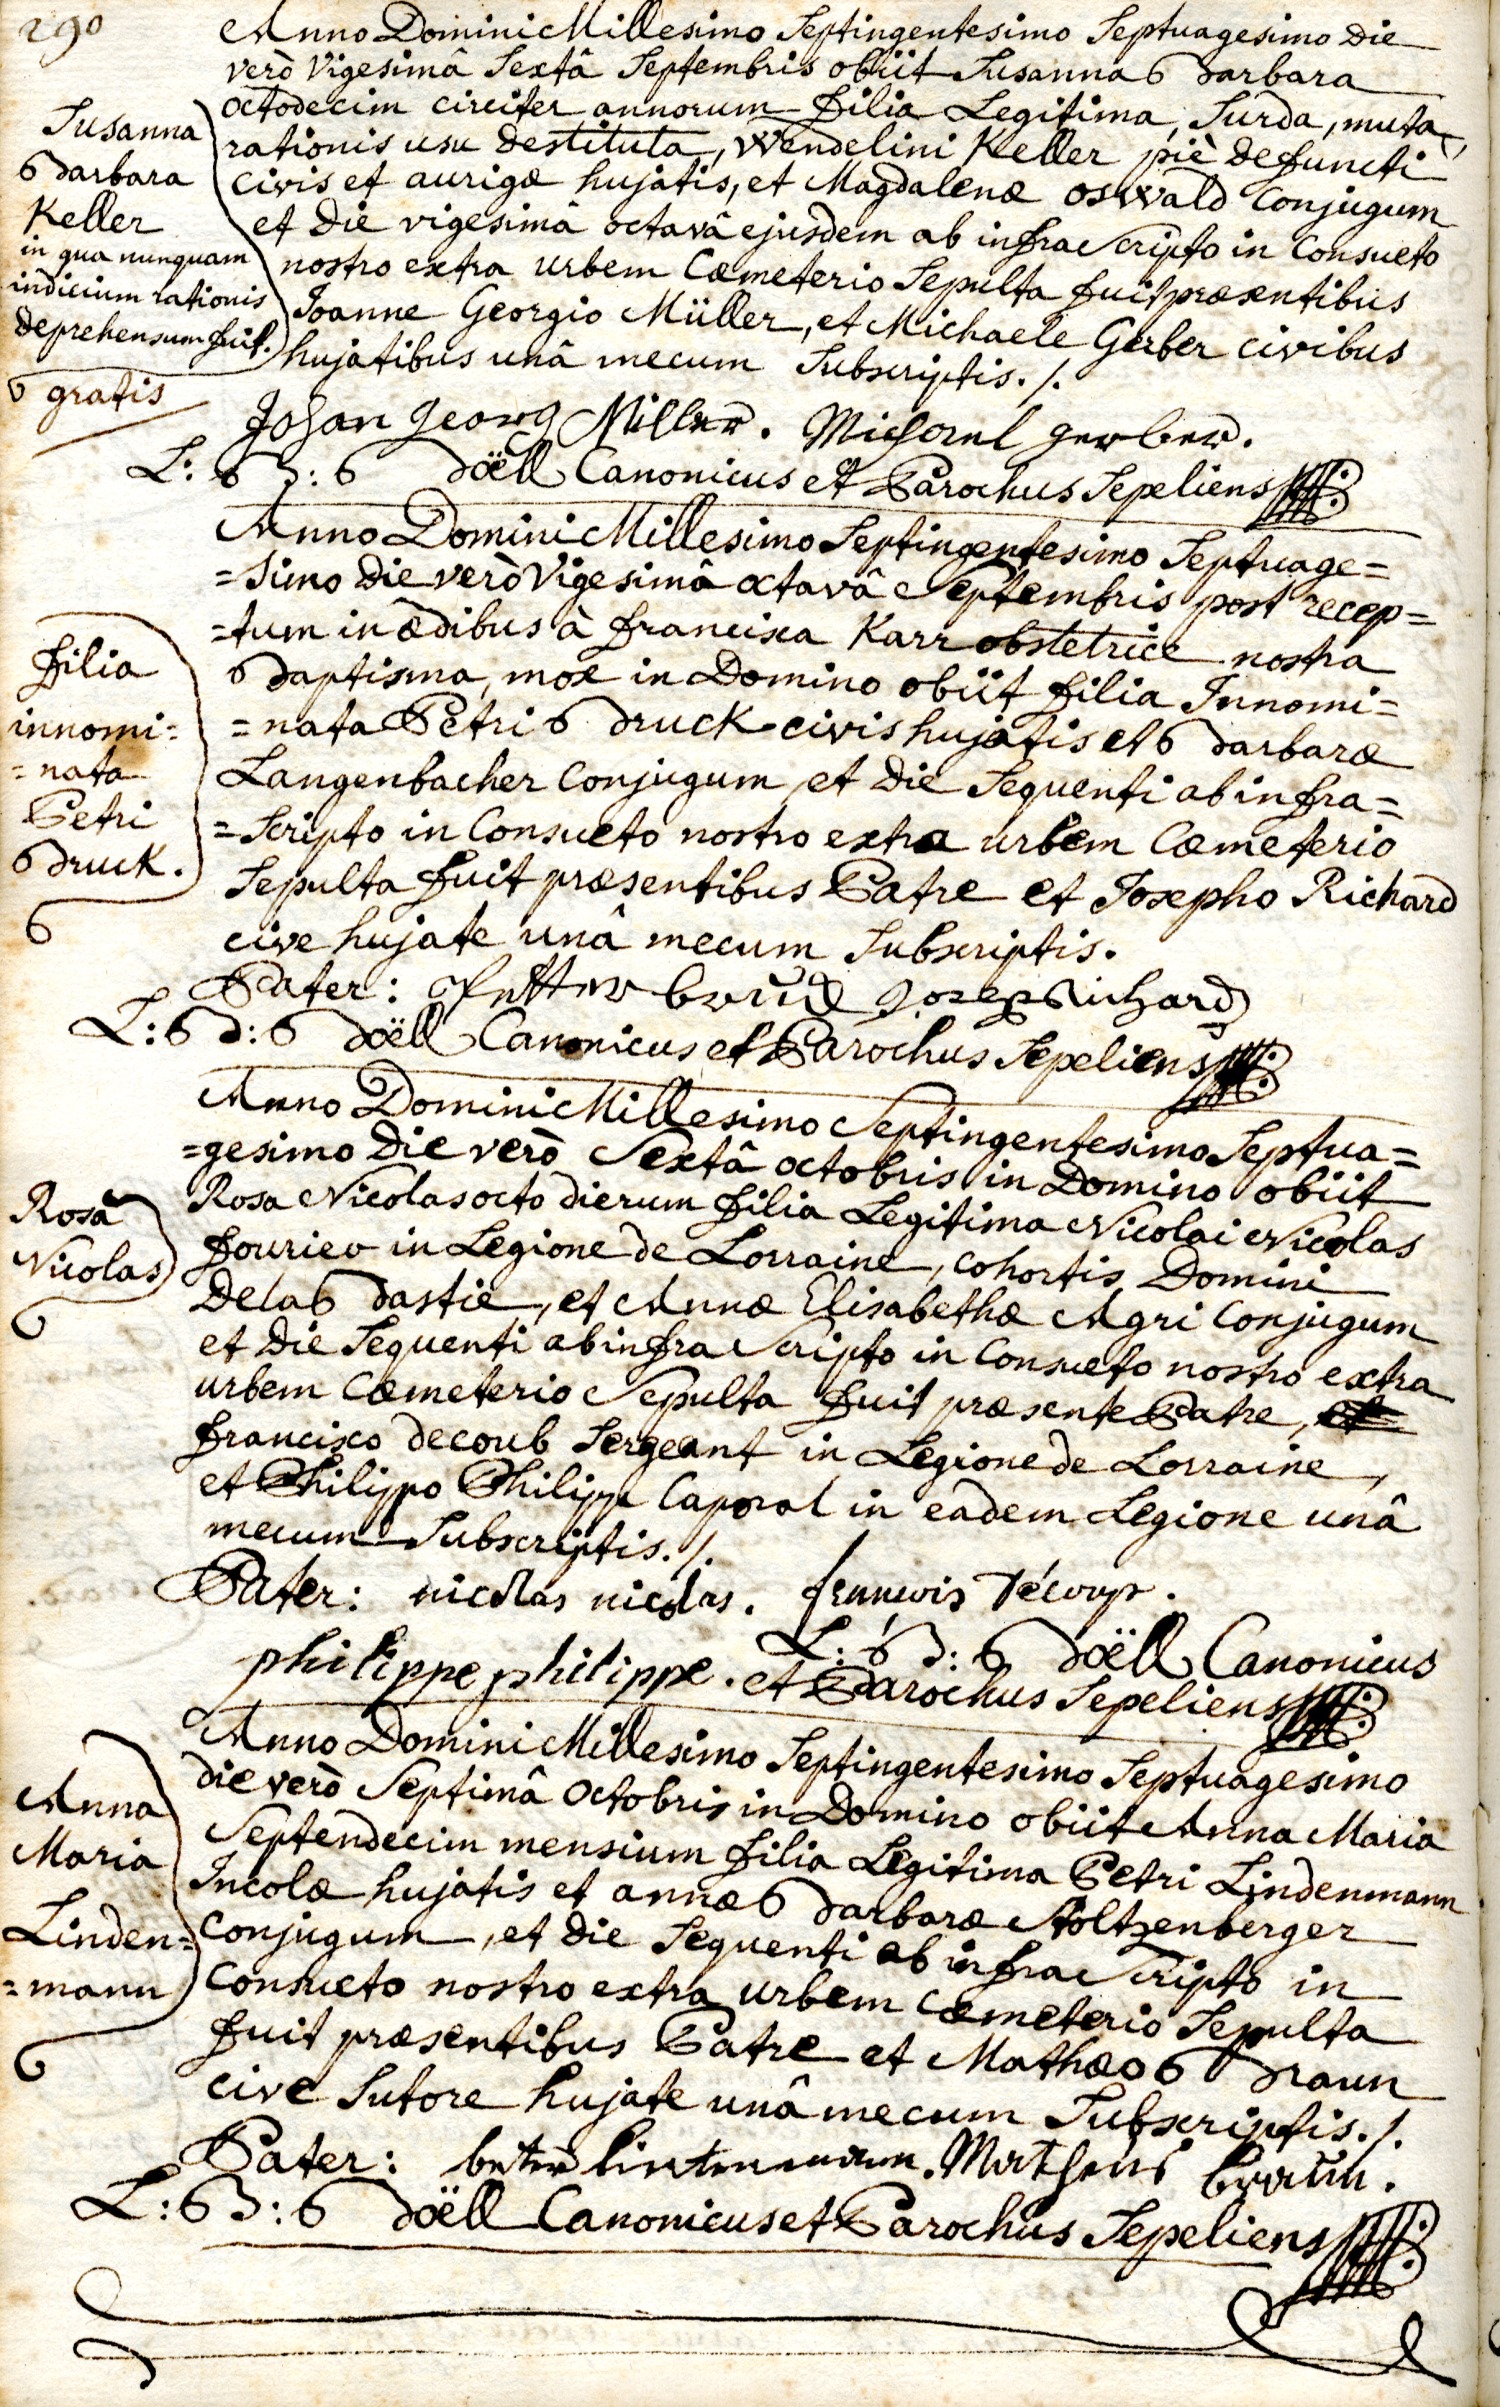 290
Anno Domini Millesimo Septingentesimo Septuagesimo Die
verò Vigesimâ Sextâ Septembris obiit Susanna Barbara
octodecim circiter annorum filia Legitima, Surda, muta,
rationis usu Destituta, Wendelini Keller piè Defuncti
civis et aurigæ hujatis, et Magdalenæ oswald Conjugum
et Die vigesimâ octavâ ejusdem ab infra Scripto in Consueto
nostro extra urbem Cæmeterio Sepulta fuit præsentibus
Joanne Georgio Müller, et Michaele Gerber civibus
hujatibus unâ mecum Subscriptis. /.
Susanna
Barbara
Keller
in qua nunquam
indicium rationis
deprehensum fuit.
gratis
Johan Georg Miller. Michael gerber.
L: B: Boëll Canonicus et Parochus Sepeliens
Anno Domini Millesimo Septingentesimo Septuage=
=Simo Die verò Vigesimâ octavâ Septembris post recep=
=tum in ædibus à francisca Karr obstetrice nostra
Baptisma, mox in Domino obiit filia Innomi=
=nata Petri Bruck civis hujatis et Barbaræ
Langenbacher Conjugum, et Die Sequenti ab infra=
=Scripto in Consueto nostro extra urbem Cæmeterio
Sepulta fuit præsentibus Patre et Josepho Richard
cive hujate unâ mecum Subscriptis.
filia
innomi=
=nata
Petri
Bruck.
Pater: Petter bruck Josep Richard
L: B: Boëll Canonicus et Parochus Sepeliens
Anno Domini Millesimo Septingentesimo Septua=
=gesimo Die verò Sextâ octobris in Domino obiit
Rosa Nicolas octo dierum filia Legitima Nicolai Nicolas
fourier in Legione de Lorraine, cohortis Domini
De la Bastie, et Annæ Elisabethæ Agri Conjugum
et Die Sequenti ab infra Scripto in Consueto nostro extra
urbem Cæmeterio Sepulta fuit præsente Patre, et
francisco decoub Sergeant in Legione de Lorraine,
et Philippo Philipp Caporal in eadem Legione unâ
mecum Subscriptis. /.
Rosa
Nicolas
Pater: nicolas nicolas. francois Découp.
philippe philippe. L: B: Boëll Canonicus
et Parochus Sepeliens
Anno Domini Millesimo Septingentesimo Septuagesimo
die verò Septimâ octobris in Domino obiit Anna Maria
Septendecim mensium filia Legitima Petri Lindenmann
Incolæ hujatis et annæ Barbaræ Stoltzenberger
Conjugum, et Die Sequenti ab infra Scripto in
Consueto nostro extra urbem Cæmeterio Sepulta
fuit præsentibus Patre et Mathæo Braun
cive Sutore hujate unâ mecum Subscriptis. /.
Anna
Maria
Linden=
=mann
Pater: beter lintenmann. Matheus braun.
L: B: Boëll Canonicus et Parochus Sepeliens